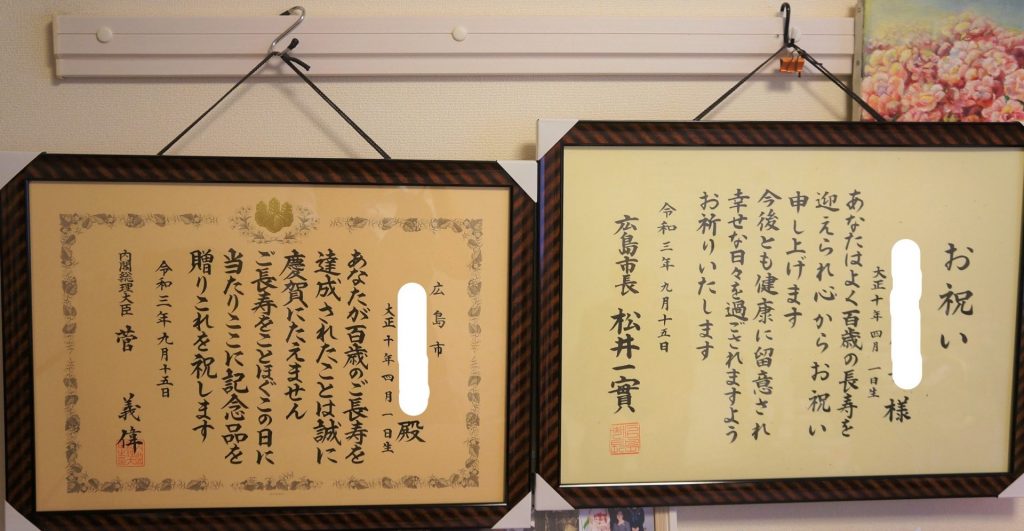 広島市
殿
大正十年四月一日生
あなたが百歳のご長寿を
達成されたことは誠に
慶賀にたえません
ご長寿をことほぐこの日に
当たりここに記念品を
贈りこれを祝します
令和三年九月十五日
内閣総理大臣 菅 義偉
お祝い
様
大正十年四月一日生
あなたはよく百歳の長寿を
迎えられ心からお祝い
申し上げます
今後とも健康に留意され
幸せな日々を過ごされますよう
お祈りいたします
令和三年九月十五日
広島市長 松井一實